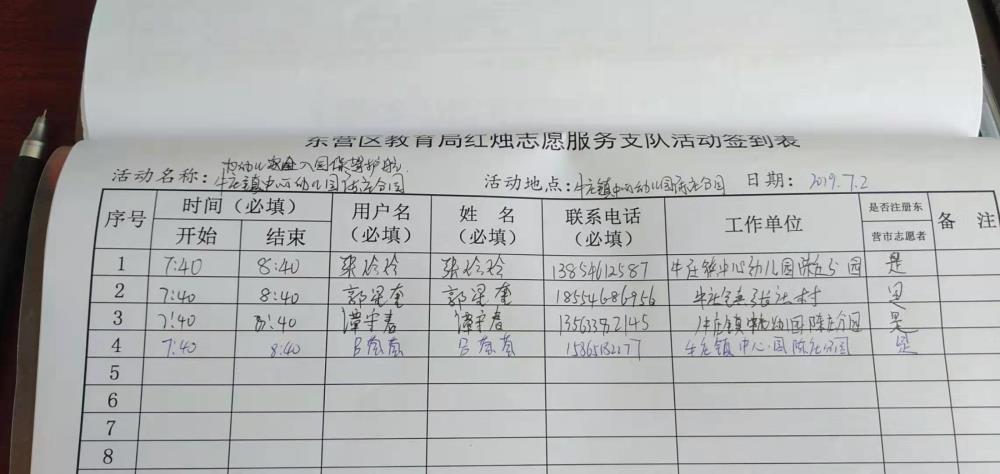 东营区教育局红烛志愿服务支队活动签到表
为幼儿安全入园保驾护航
活动名称：牛庄镇中心幼儿园陈庄分园 活动地点：牛庄镇中心幼儿园陈庄分园 日期：2019.7.2
序号 时间（必填） 用户名（必填） 姓名（必填） 联系电话（必填） 工作单位 是否注册东营市志愿者 备注
开始 结束
1 7:40 8:40 张玲玲 张玲玲 13854612587 牛庄镇中心幼儿园陈庄分园 是
2 7:40 8:40 郭梁奎 郭梁奎 18554686956 牛庄镇 村 是
3 7:40 8:40 谭守春 谭守春 13563382145 牛庄镇中心幼儿园陈庄分园 是
4 7:40 8:40 吕 吕 牛庄镇中心园陈庄分园 是
5
6
7
8